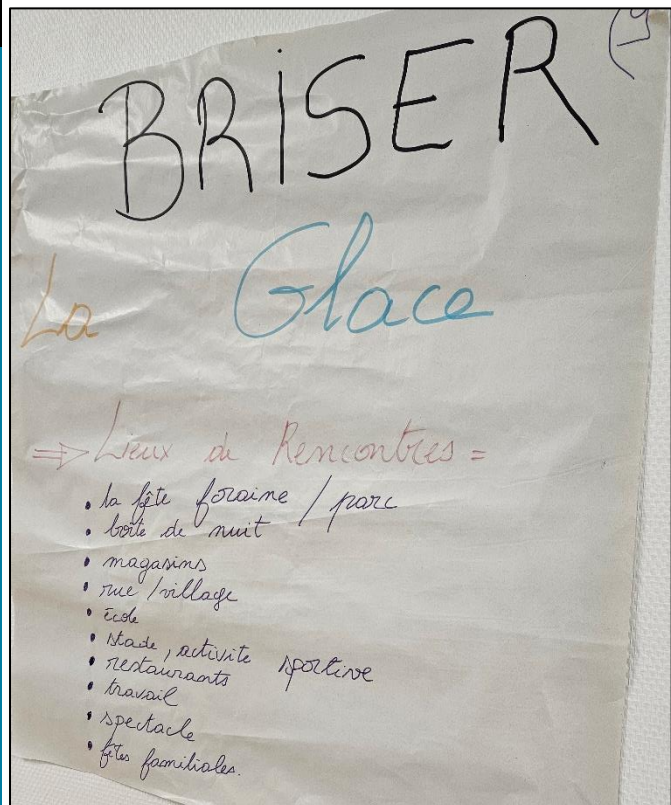 BRISER
La Glace
⇒ Lieux de Rencontres =
• la fête foraine / parc
• boîte de nuit
• magasins
• rue / village
• école
• stade, activité sportive
• restaurants
• travail
• spectacle
• fêtes familiales.